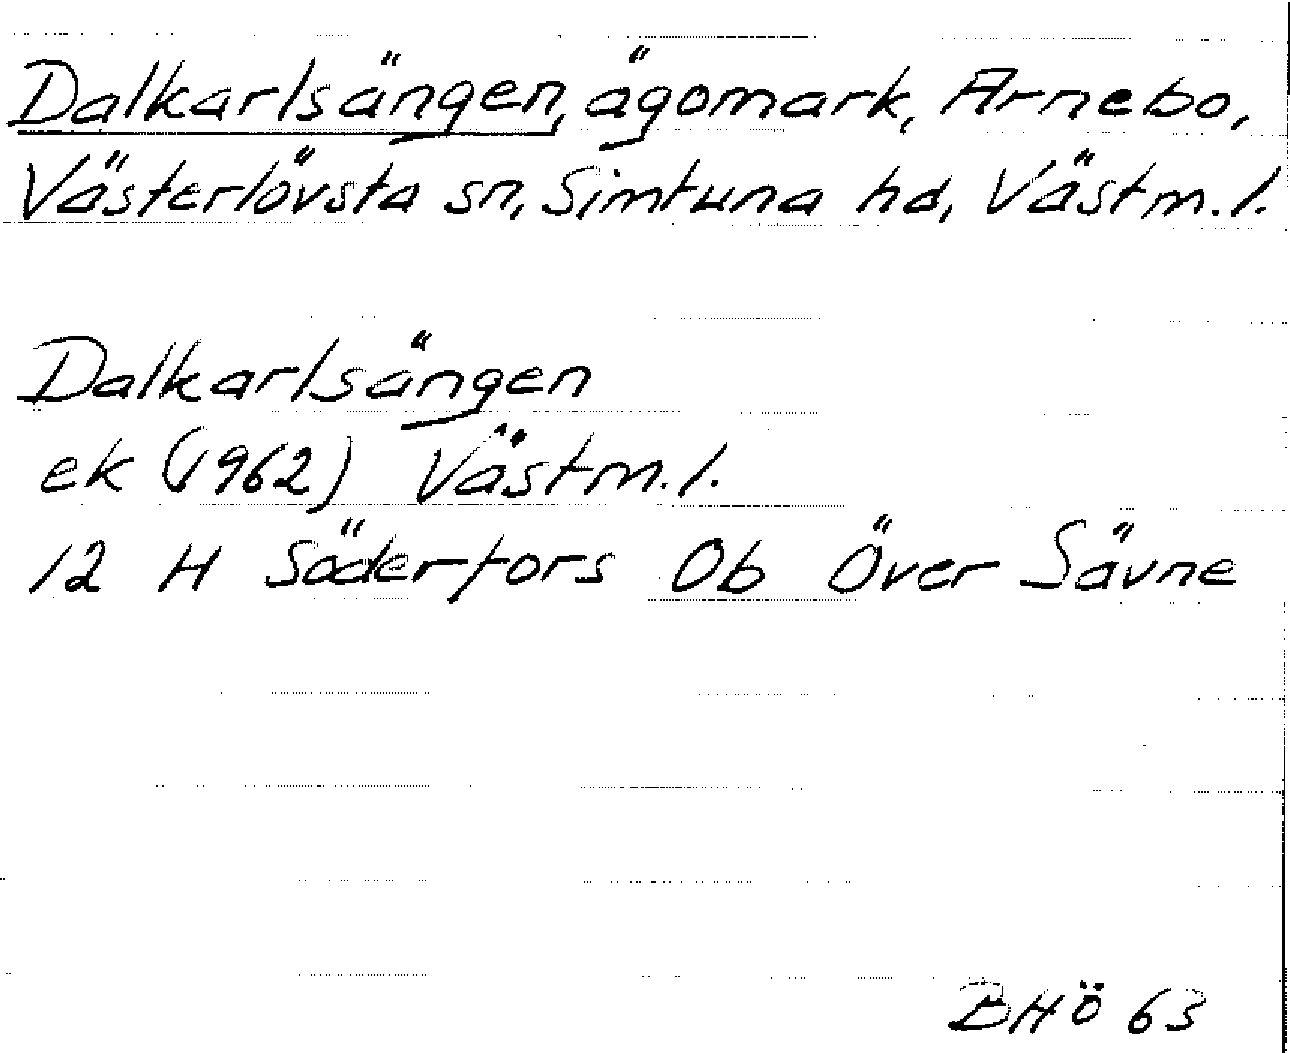 Dalkarlsängen, ägomark, Arnebo,
Västerlövsta sn, Simtuna hd, Västm.l.
Dalkarlsängen
ek (1962) Västm.l.
12 H Söderfors 0b Över Sävne
BHÖ 63